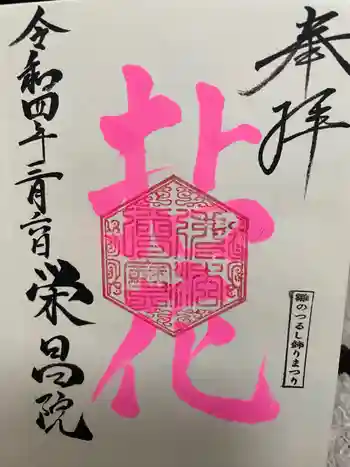 奉拝
雛のつるし飾りまつり
桃花
令和四年三月六日
榮昌院